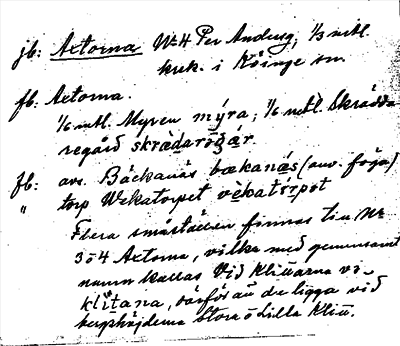 jb: Axtorna No 4 Per Anders, 1/3 mtl.
krk. i Köinge sn.
fb: Axtorna.
1/6 mtl. Myren mýra; 1/6 mtl. Skrädda
regård skrädarogár.
fb: avs. Bäckanäs bækanäs (anv. föga)
" torp Wekatorpet vekatörpöt
Flera småställen finnas t
3 o 4 Axtorna, vilka med gemensamt
namn kallas Vid Kliuarna vi-
klitana, därför att de ligga vid
berghöjderna Stora o Lilla Kliu.